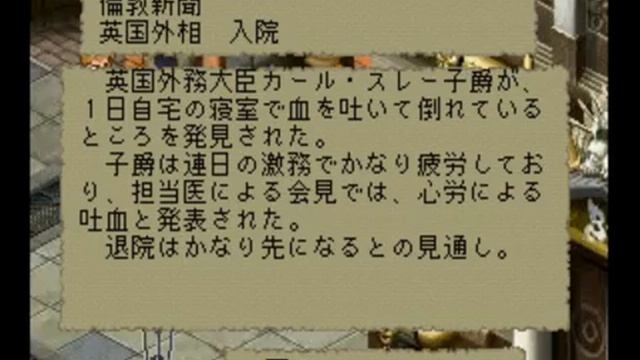 倫敦新聞
英国外相　入院
　英国外務大臣カール・スレー子爵が、
１日自宅の寝室で血を吐いて倒れている
ところを発見された。
　子爵は連日の激務でかなり疲労してお
り、担当医による会見では、心労による
吐血と発表された。
　退院はかなり先になるとの見通し。